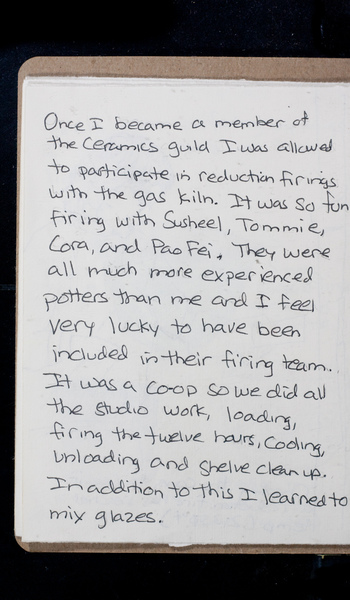 Once I became a member of
the Ceramics guild I was allowed
to participate in reduction firings
with the gas kiln. It was so fun
firing with Susheel, Tommie,
Cora, and Pao Fei. They were
all much more experienced
potters than me and I feel
very lucky to have been
included in their firing team.
It was a co-op so we did all
the studio work, loading,
firing the twelve hours, cooling,
unloading and shelve clean up.
In addition to this I learned to
mix glazes.